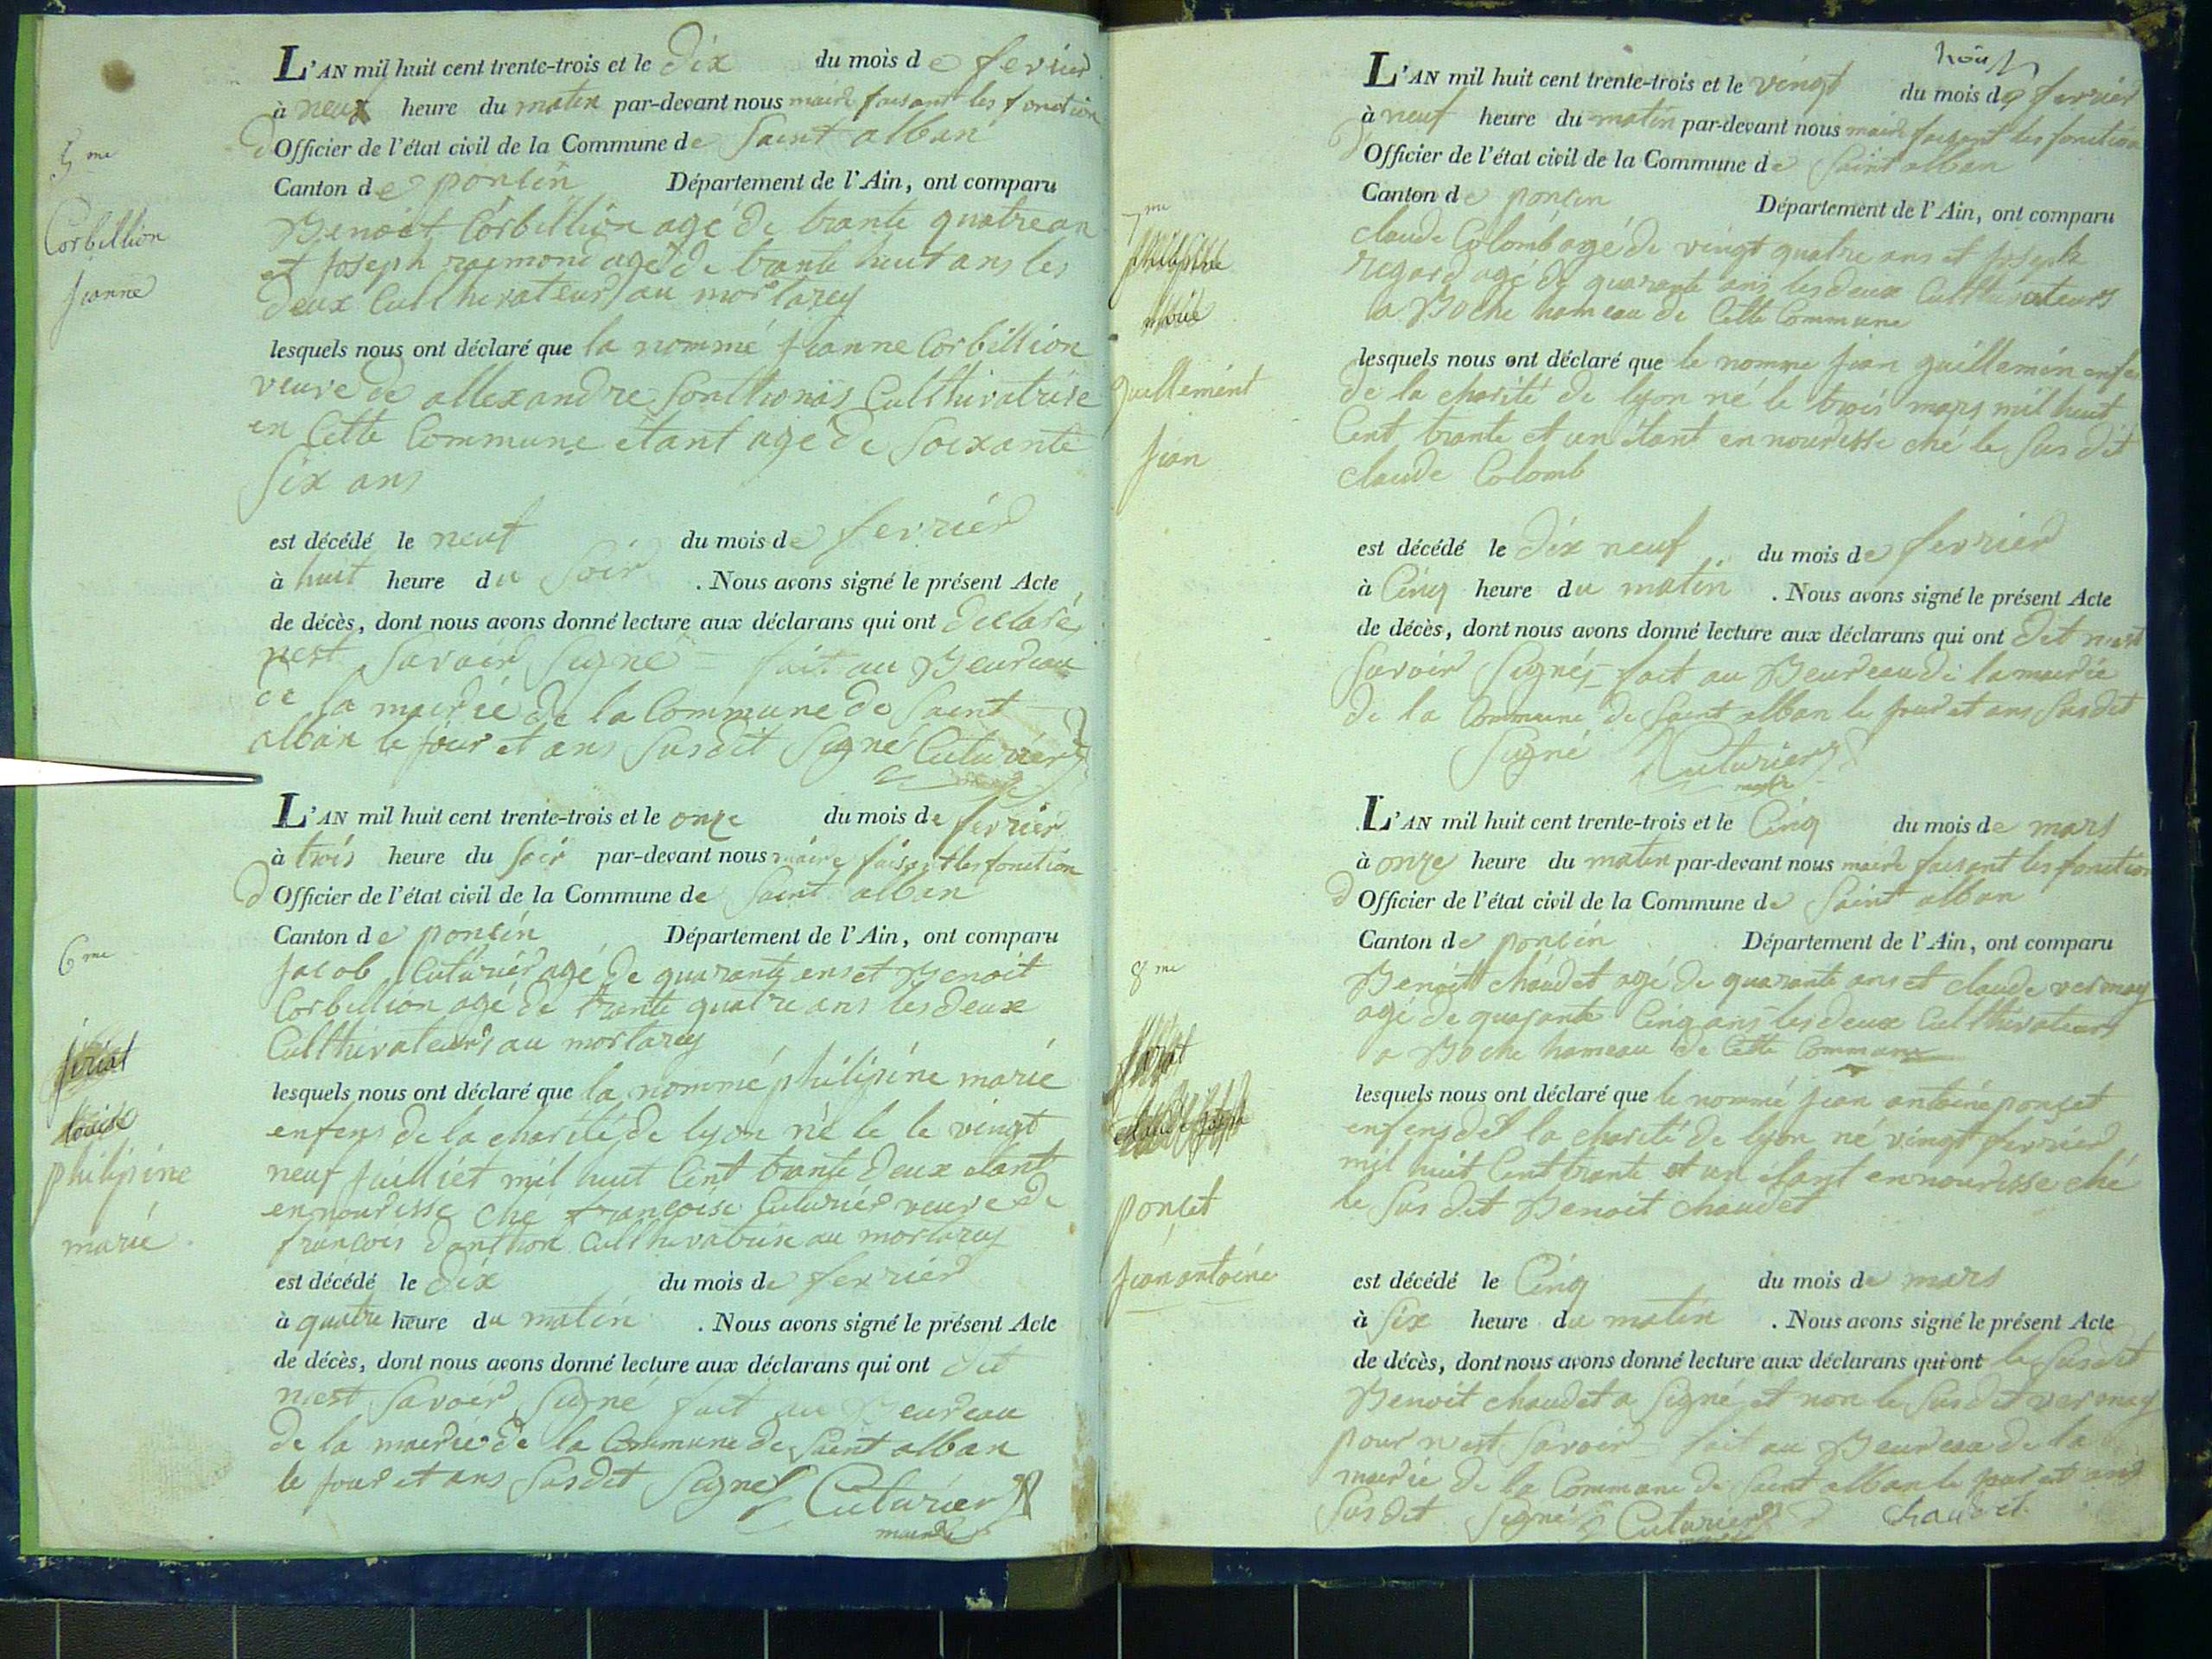 L'AN mil huit cent trente-trois et le dix du mois de fevrier
à neuf heure du matin par-devant nous maire faisant les fonction
d Officier de l'état civil de la Commune de Saint alban
Canton de poncin Département de l'Ain, ont comparu
Benoit Corbillion agé de trante quatre an
et Joseph raimond agé de trante huit ans les
deux Culthivateurs au mortarey
lesquels nous ont déclaré que la nommé jeanne Corbillion
veuve de allexandre Sonthonas Culthivatrise
en Cette Commune étant agé de Soixante
Six ans
est décédé le neuf du mois de fevrier
à huit heure du Soir . Nous avons signé le présent Acte
de décès, dont nous avons donné lecture aux déclarans qui ont déclaré
nest Savoir Signé - fait au Beureau
de la mairie de la Commune de Saint
alban le jour et ans Susdit Signé Cuturier
maire
5me
Corbillion
jeanne
L'AN mil huit cent trente-trois et le onze du mois de fevrier
à trois heure du Soir par-devant nous maire faisant les fonction
d Officier de l'état civil de la Commune de Saint alban
Canton de poncin Département de l'Ain, ont comparu
jacob Cuturier agé de quarante ans et Benoit
Corbillion agé de trante quatre ans les deux
Culthivateurs au mortarey
lesquels nous ont déclaré que la nommé philipine marie
enfens de la charité de lyon né le le vingt
neuf juilliet mil huit Cent trante deux étant
en nourisse ché françoise Cuturier veuve de
francois danthon Culthivatrise au mortarey
est décédé le dix du mois de fevrier
à quatre heure du matin . Nous avons signé le présent Acte
de décès, dont nous avons donné lecture aux déclarans qui ont dit
nest Savoir Signé fait au Beureau
de la mairie de la Commune de Saint alban
le jour et ans Susdit Signé Cuturier
maire
6me
jeriat
louise
philipine
marie
L'AN mil huit cent trente-trois et le vingt du mois de fevrier
à neuf heure du matin par-devant nous maire faisant les fonction
d Officier de l'état civil de la Commune de Saint alban
Canton de poncin Département de l'Ain, ont comparu
claude Colomb agé de vingt quatre ans et joseph
regard agé de quarante ans les deux Culthivateurs
a Boche hameau de Cette Commune
lesquels nous ont déclaré que le nommé jean guillemin enfen
de la charité de lyon né le trois mars mil huit
Cent trante et un étant en nourisse ché le Sus dit
claude Colomb
est décédé le dix neuf du mois de fevrier
à Cinq heure du matin . Nous avons signé le présent Acte
de décès, dont nous avons donné lecture aux déclarans qui ont dit nest
Savoir Signés - fait au Beureau de la mairie
de la Commune de Saint alban le jour et ans Susdit
Signé Cuturier
maire
7me
philipine
marie
guillemint
jean
L'AN mil huit cent trente-trois et le Cinq du mois de mars
à onze heure du matin par-devant nous maire faisant les fonction
d Officier de l'état civil de la Commune de Saint alban
Canton de poncin Département de l'Ain, ont comparu
Benoitt chaudet agé de quarante ans et claude vernay
agé de quarante Cinq ans les deux Culthivateurs
a Boche hameau de Cette Commune
lesquels nous ont déclaré que le nommé jean antoine poncet
enfens del la charité de lyon né vingt fevrier
mil huit Cent trante et un étant en nourisse ché
le Sus dit Benoit chaudet
est décédé le Cinq du mois de mars
à Six heure du matin . Nous avons signé le présent Acte
de décès, dont nous avons donné lecture aux déclarans qui ont le Susdit
Benoit chaudet a Signé et non le Susdit vernay
pour nest Savoir - fait au Beureau de la
mairie de la Commune de Saint alban le jour et ans
Susdit Signé Cuturier chaudet
8me
poncet
jean antoine